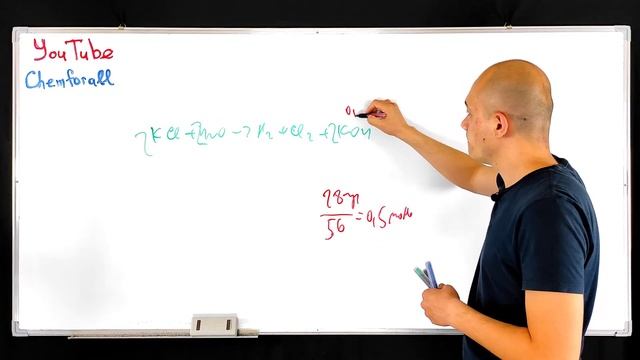 YouTube
Chemforall
0,
2KCl + 2H2O -> H2 + Cl2 + 2KOH
28гр
56 = 0,5 моль